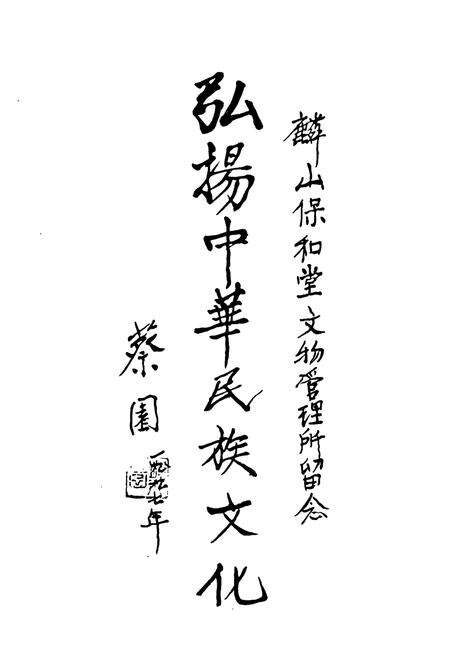 麟山保和堂文物管理所留念
弘揚中華民族文化
蔡園
一九九七年